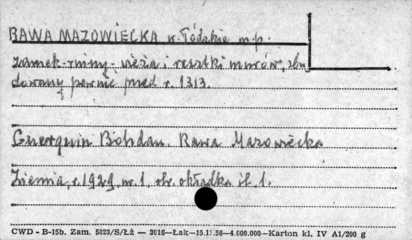 RAWA MAZOWIECKA w. Łódzkie m.p.
zamek-ruiny - wieża i resztki murów, zbu
dowany pewnie przed r. 1313.
Guerquin Bohdan. Rawa Mazowiecka
Ziemia, r. 1929, nr. 1, str. okładka il. 1.
CWD - B-15b. Zam. 5323/S/ŁŻ — 3016—Łak—15.11.56—4.000.000—Karton kl. IV A1/200 g